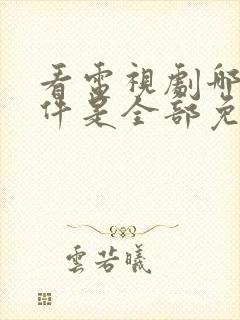 看電視劇哪
件是全部免
雲若曦